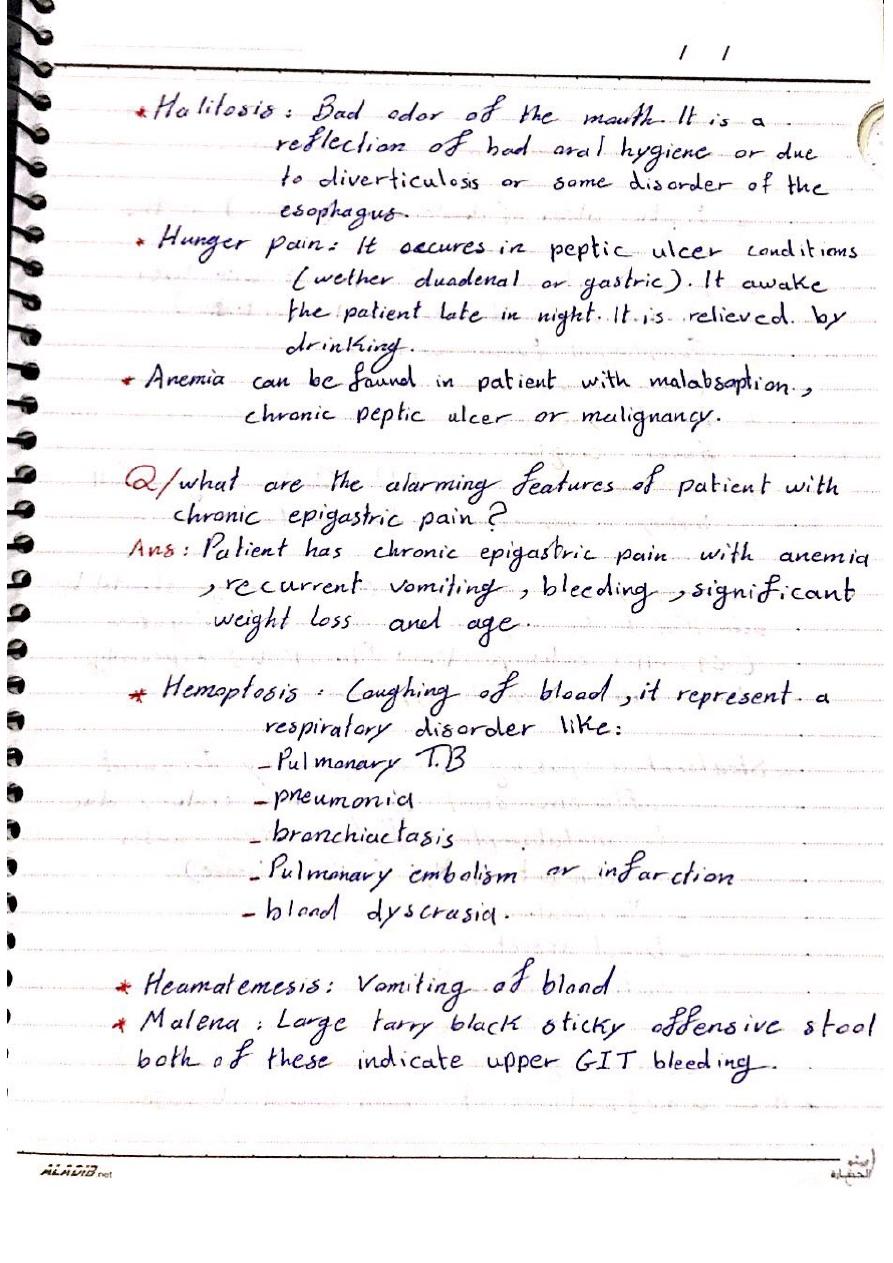 / /
* Halitosis : Bad odor of the mouth. It is a
reflection of bad oral hygiene or due
to diverticulosis or some disorder of the
esophagus.
* Hunger pain : It occures in peptic ulcer conditions
(wether duadenal or gastric). It awake
the patient late in night. It is relieved by
drinking.
* Anemia can be found in patient with malabsaption,
chronic peptic ulcer or malignancy.
Q/ what are the alarming features of patient with
chronic epigastric pain ?
Ans : Patient has chronic epigastric pain with anemia
, recurrent vomiting , bleeding , significant
weight loss and age.
* Hemoptosis : Coughing of blood , it represent a
respiratory disorder like :
- Pulmonary T.B
- pneumonia
- bronchiactasis
- Pulmonary embolism or infarction
- blood dyscrasia.
* Heamatemesis : Vomiting of blood
* Malena : Large tarry black sticky offensive stool
both of these indicate upper GIT bleeding.
ALADIB.net